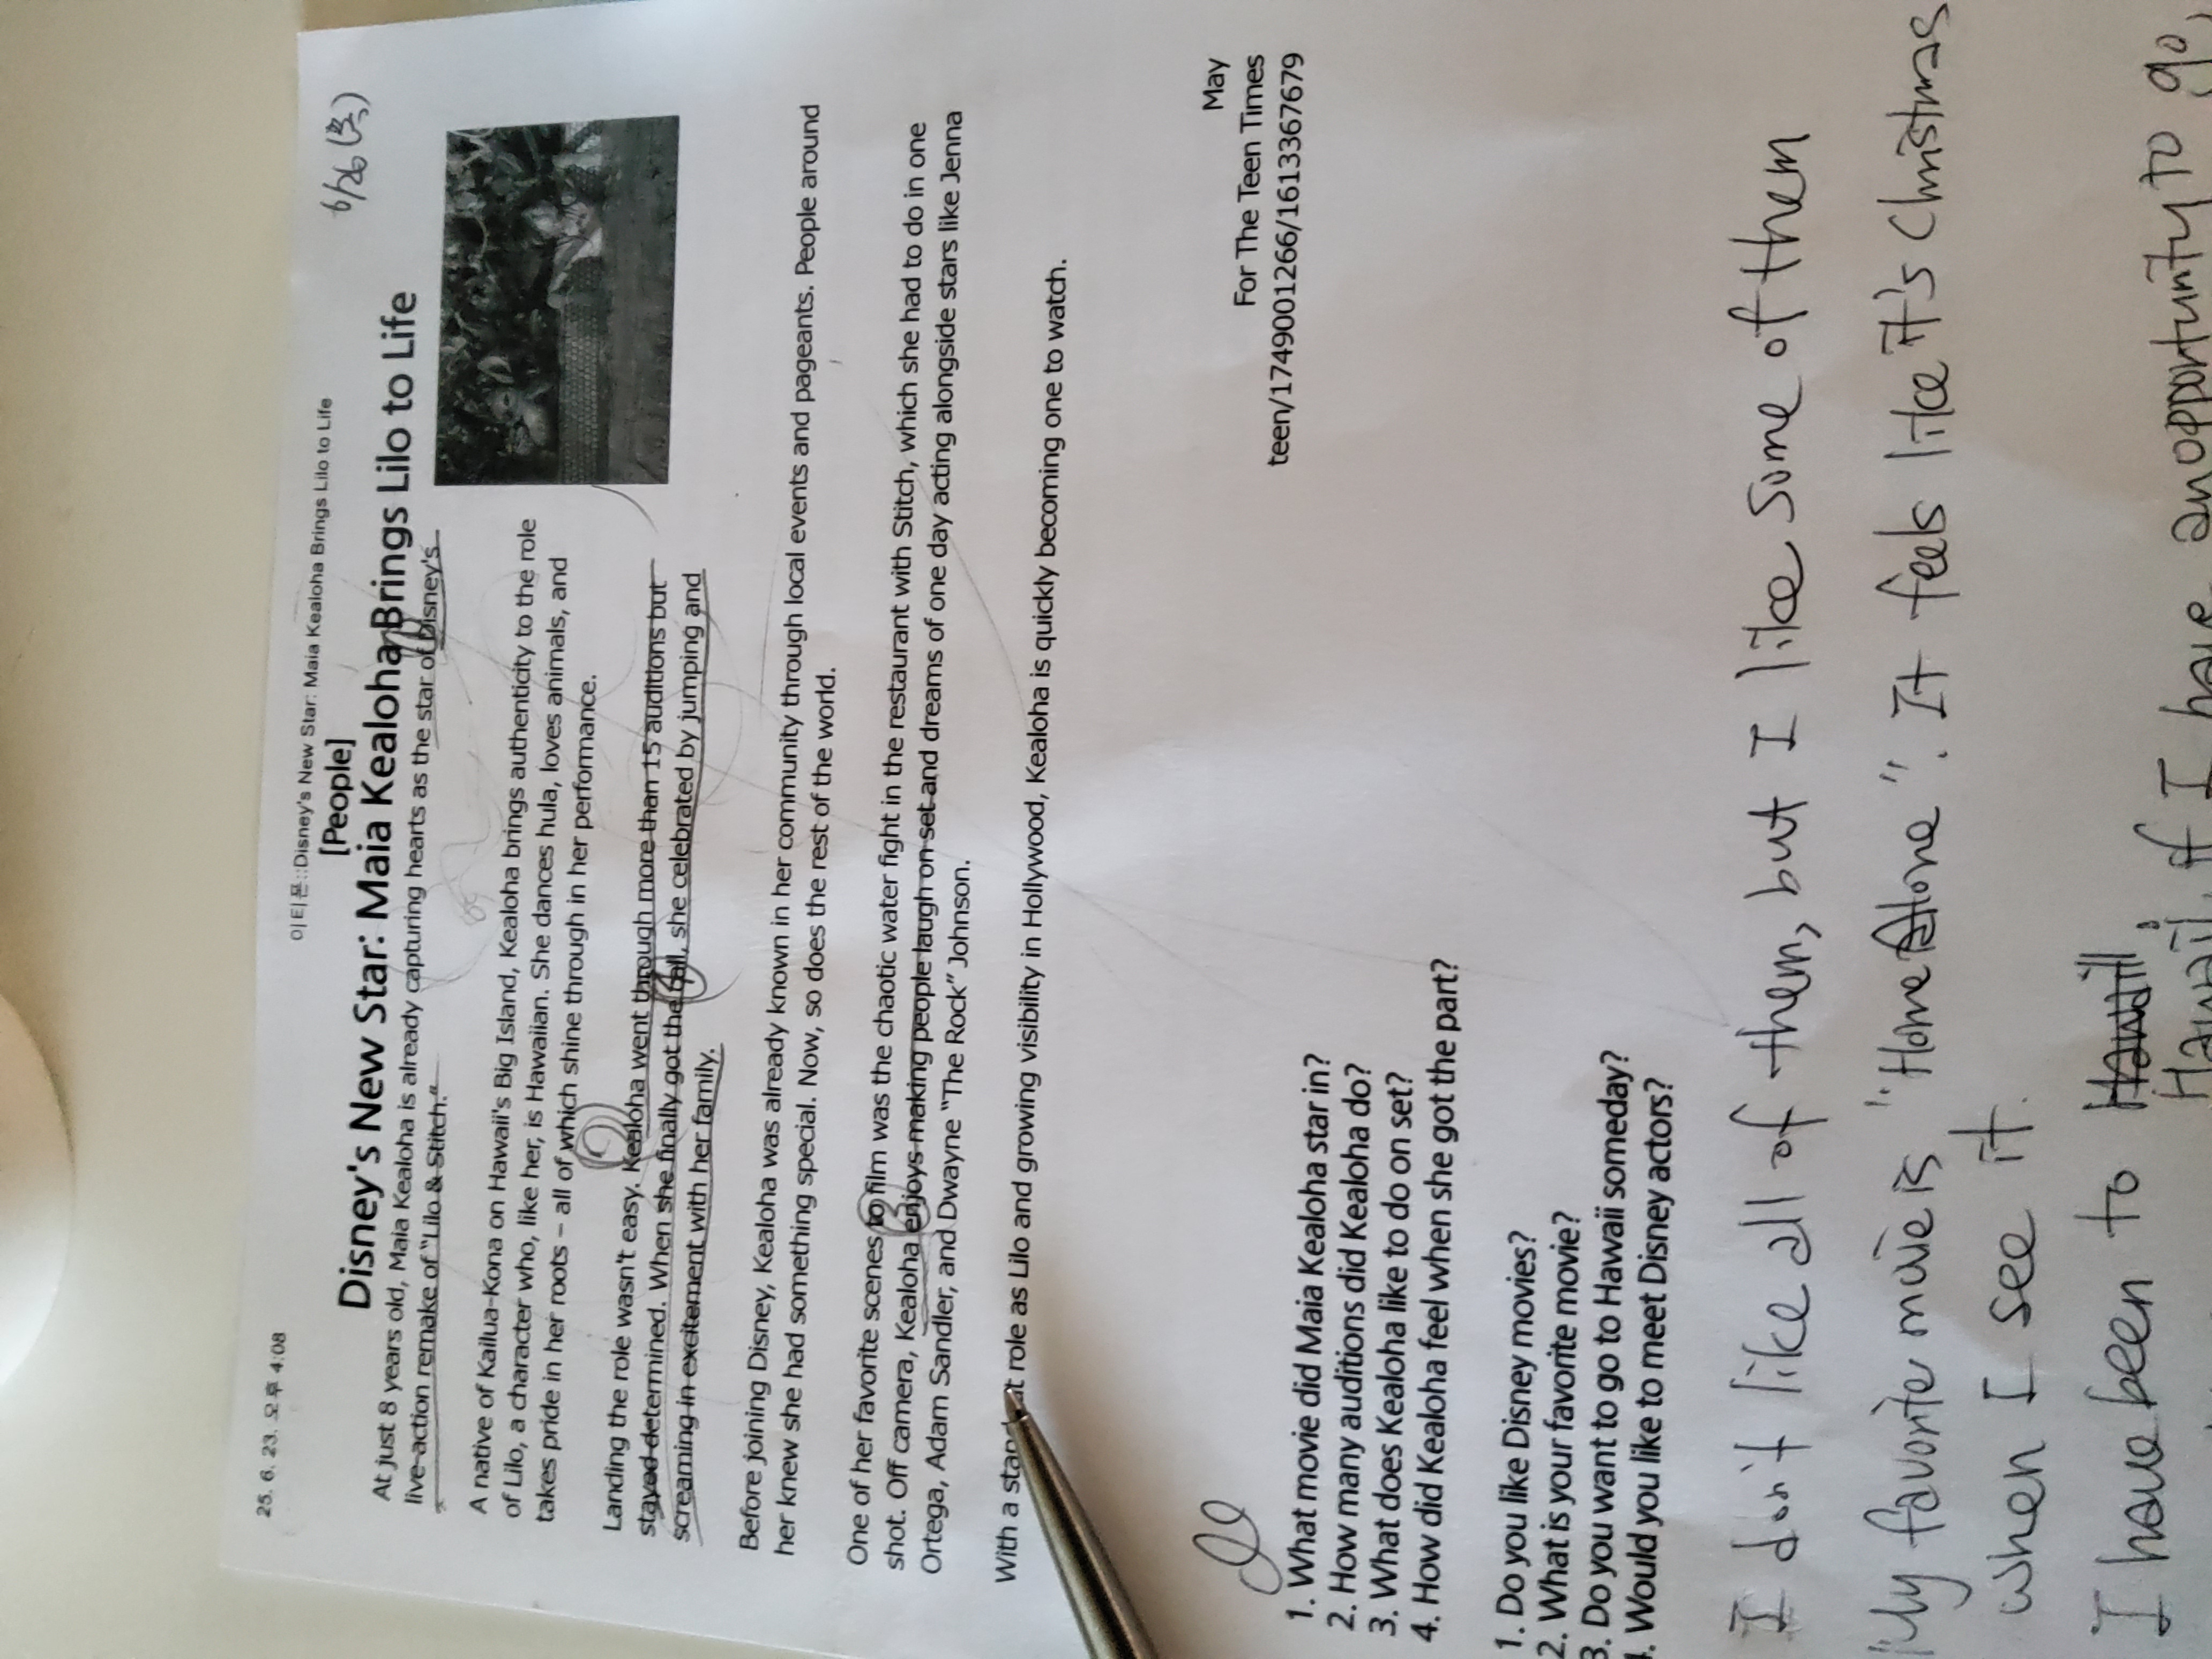 25. 6. 23. 오후 4:08
이티폰::Disney's New Star: Maia Kealoha Brings Lilo to Life
6/26 (목)
[People]
Disney's New Star: Maia Kealoha Brings Lilo to Life
At just 8 years old, Maia Kealoha is already capturing hearts as the star of Disney's
live-action remake of "Lilo & Stitch."
A native of Kailua-Kona on Hawaii's Big Island, Kealoha brings authenticity to the role
of Lilo, a character who, like her, is Hawaiian. She dances hula, loves animals, and
takes pride in her roots – all of which shine through in her performance.
Landing the role wasn't easy. Kealoha went through more than 15 auditions but
stayed determined. When she finally got the call, she celebrated by jumping and
screaming in excitement with her family.
Before joining Disney, Kealoha was already known in her community through local events and pageants. People around
her knew she had something special. Now, so does the rest of the world.
One of her favorite scenes to film was the chaotic water fight in the restaurant with Stitch, which she had to do in one
shot. Off camera, Kealoha enjoys making people laugh on set and dreams of one day acting alongside stars like Jenna
Ortega, Adam Sandler, and Dwayne "The Rock" Johnson.
With a role as Lilo and growing visibility in Hollywood, Kealoha is quickly becoming one to watch.
May
For The Teen Times
teen/1749001266/1613367679
1. What movie did Maia Kealoha star in?
2. How many auditions did Kealoha do?
3. What does Kealoha like to do on set?
4. How did Kealoha feel when she got the part?
1. Do you like Disney movies?
2. What is your favorite movie?
3. Do you want to go to Hawaii someday?
. Would you like to meet Disney actors?
I don't like all of them, but I like some of them
My favorite movie is "Home Alone". It feels like it's Christmas
when I see it.
I have been to
Hawaii, if I have an opportunity to go,